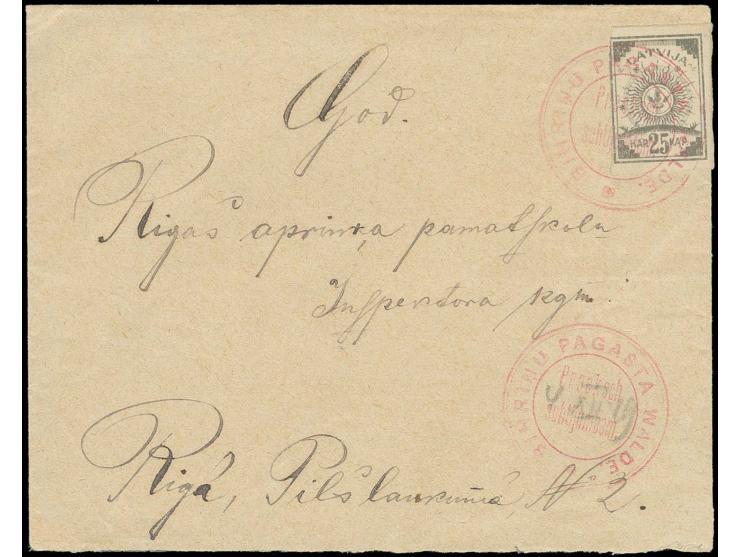 God.
LATVIJA
KAP. 25 KAP.
PAGASTA WALDE.
Rigas aprinķa pamatskolu
Inspektora kgm.
BIRIŅU PAGASTA WALDE.
XII 19
Rigā, Pilslaukumā, No 2.